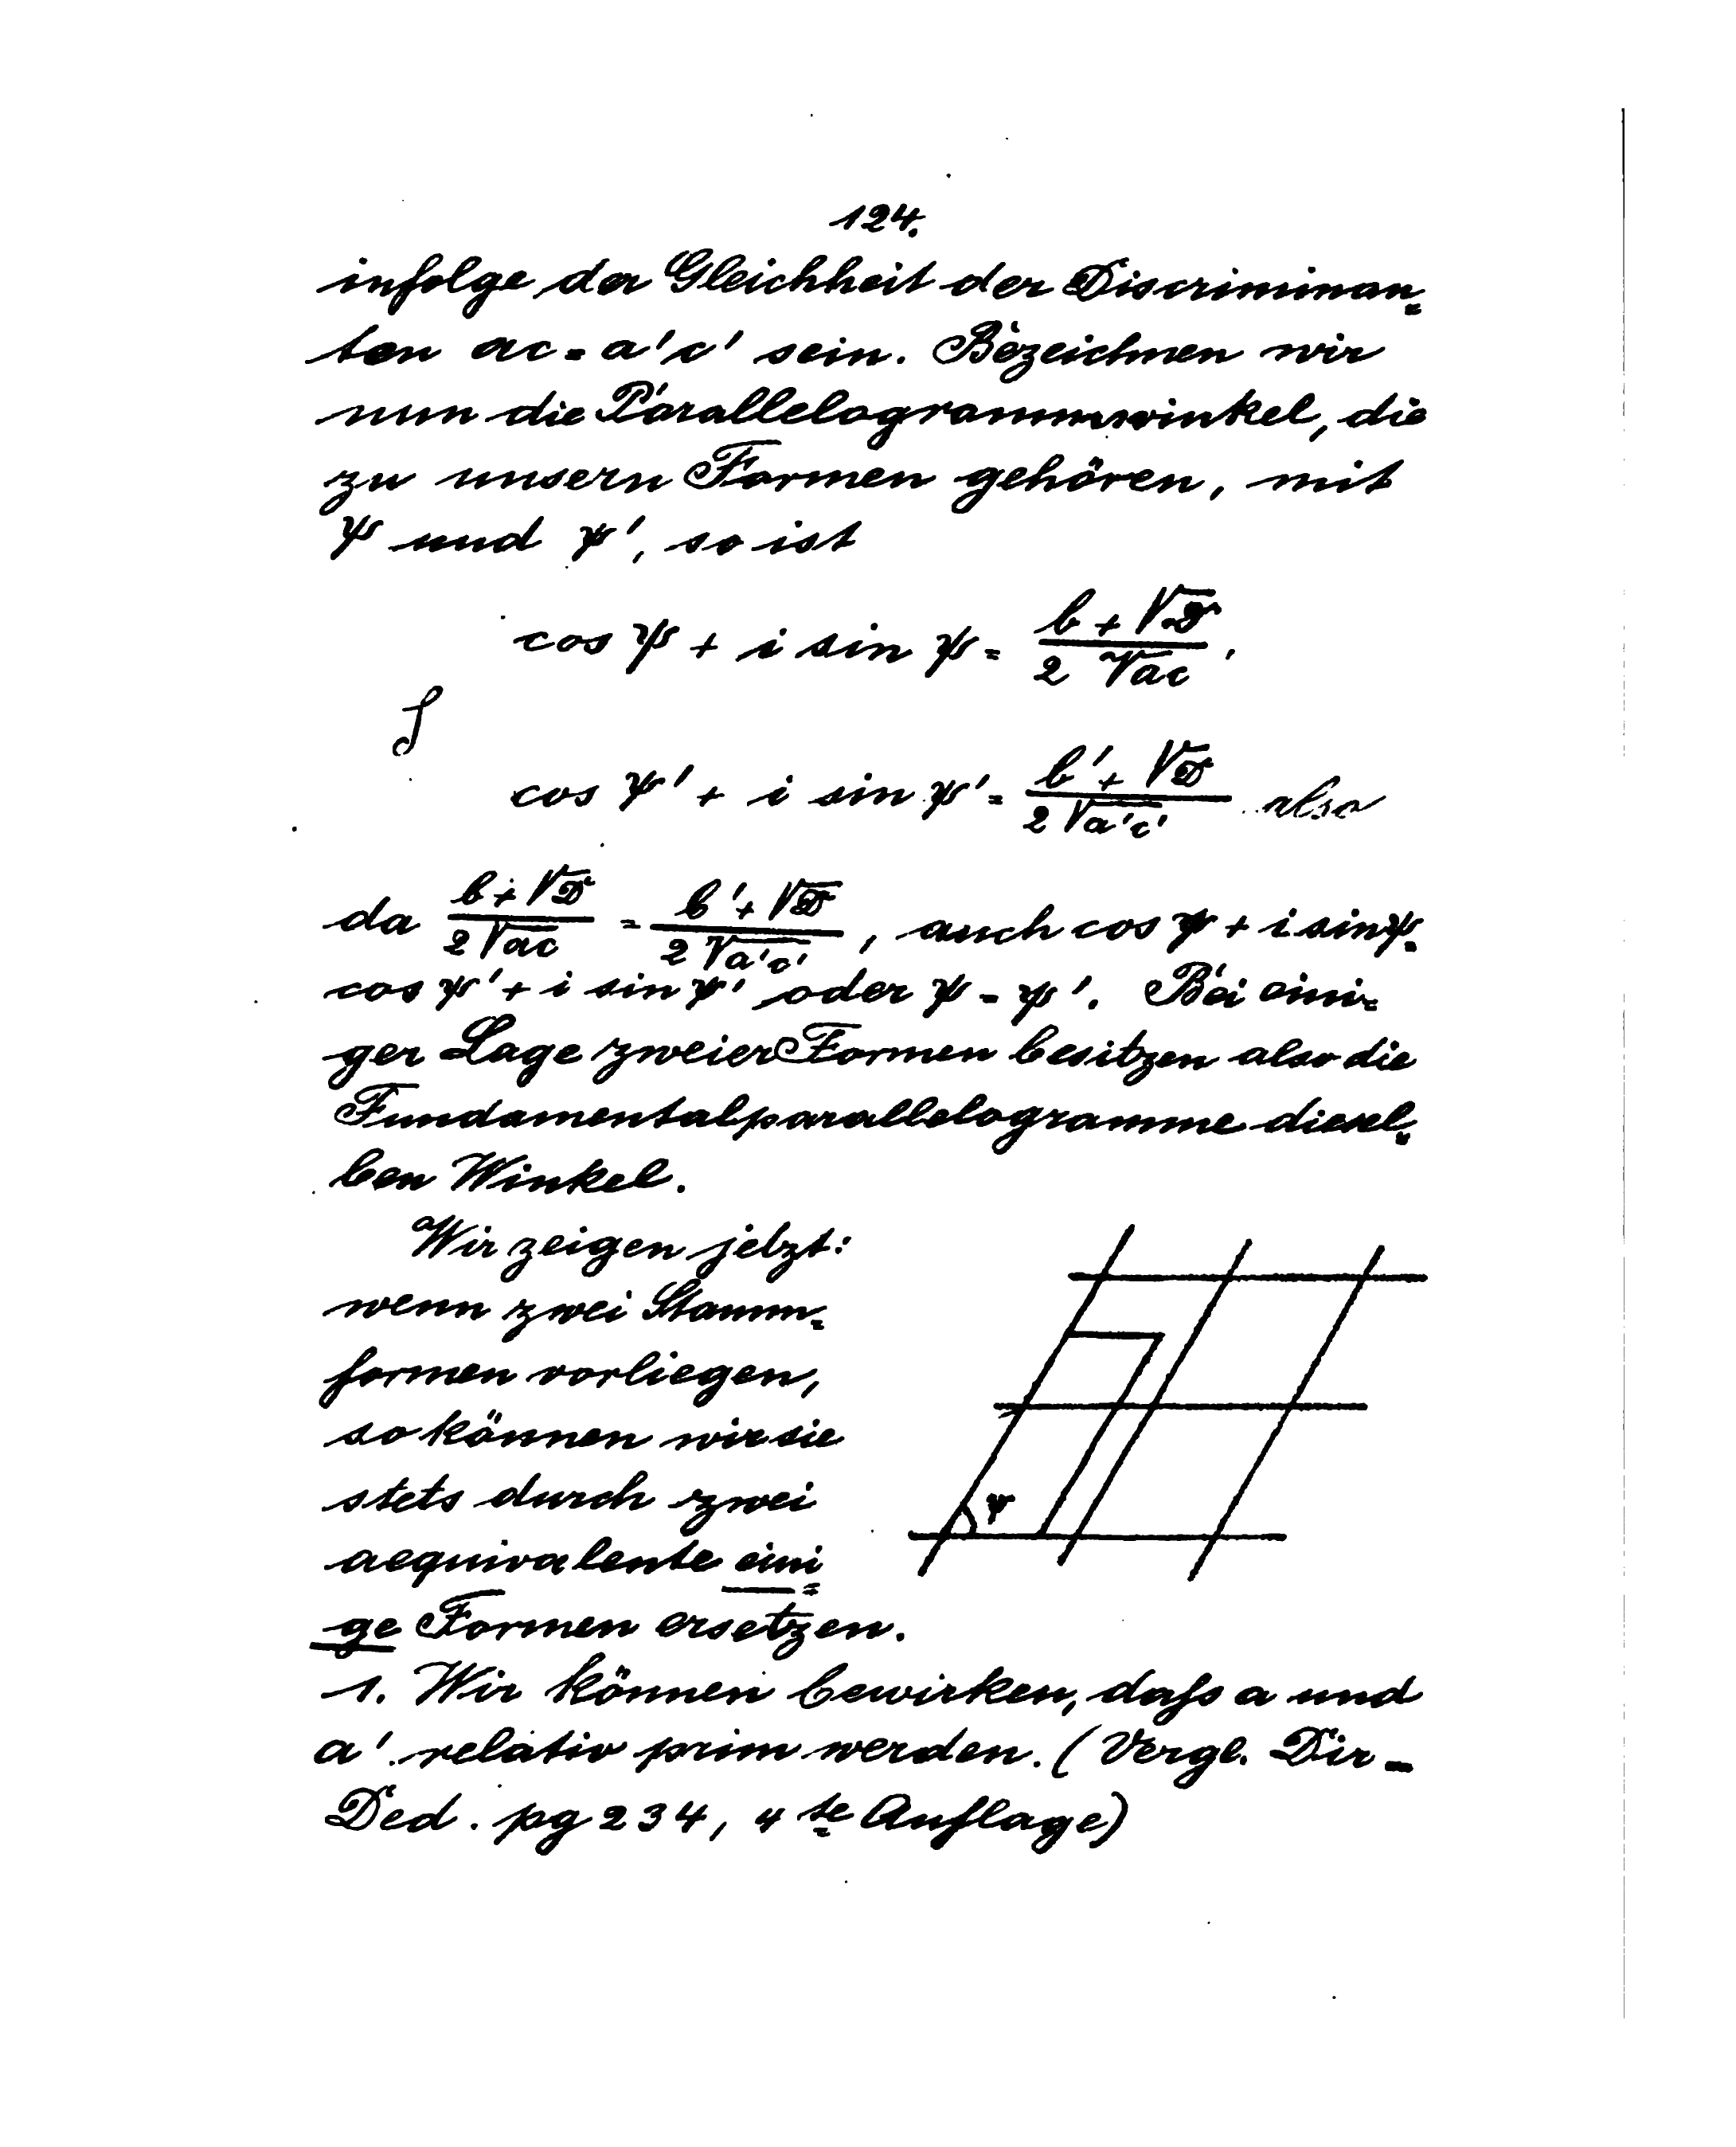 124.
infolge der Gleichheit der Discriminan=
ten ac = a'c' sein. Bezeichnen wir
nun die Parallelogrammwinkel, die
zu unsern Formen gehören, mit
ψ und ψ', so ist
cos ψ + i sin ψ = (b + √D)/(2 √ac),
cos ψ' + i sin ψ' = (b' + √D)/(2 √a'c') also
da (b + √D)/(2 √ac) = (b' + √D)/(2 √a'c'), auch cos ψ + i sin ψ =
cos ψ' + i sin ψ' oder ψ = ψ'. Bei eini=
ger Lage zweier Formen besitzen also die
Fundamentalparallelogramme diesel=
ben Winkel.
Wir zeigen jetzt:
wenn zwei Stamm=
formen vorliegen,
so können wir sie
stets durch zwei
aequivalente eini=
ge Formen ersetzen.
ψ
1. Wir können bewirken, dass a und
a' relativ prim werden. (Vergl. Dir-
Ded. pg 234, 4te Auflage)